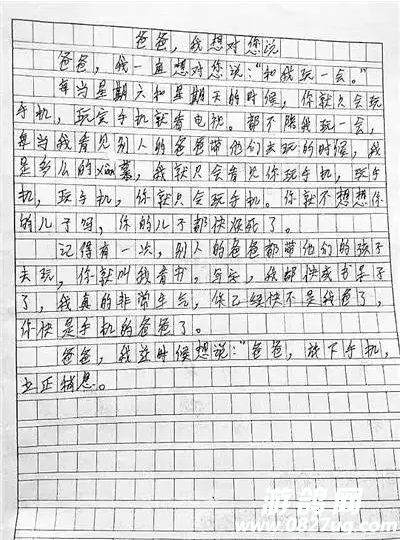 爸爸，我想对您说
爸爸，我一直想对您说："和我玩一会。"
每当星期六和星期天的时候，你就只会玩
手机，玩完手机就看电视。都不陪我玩一会，
每当我看见别人的爸爸带他们去玩的时候，我
是多么的xian慕，我就只会看见你玩手机，玩手
机，玩手机，你就只会玩手机。你就不想想你
的儿子吗，你的儿子都快没死了。
记得有一次，别人的爸爸都带他们的孩子
去玩，你就叫我看书，写字，我都快成书呆子
了，我真的非常生气，你已经快不是我爸了，
你快是手机的爸爸了。
爸爸，我这时候想说："爸爸，放下手机，
立正稍息。
游鸽网
www.0827yg.com